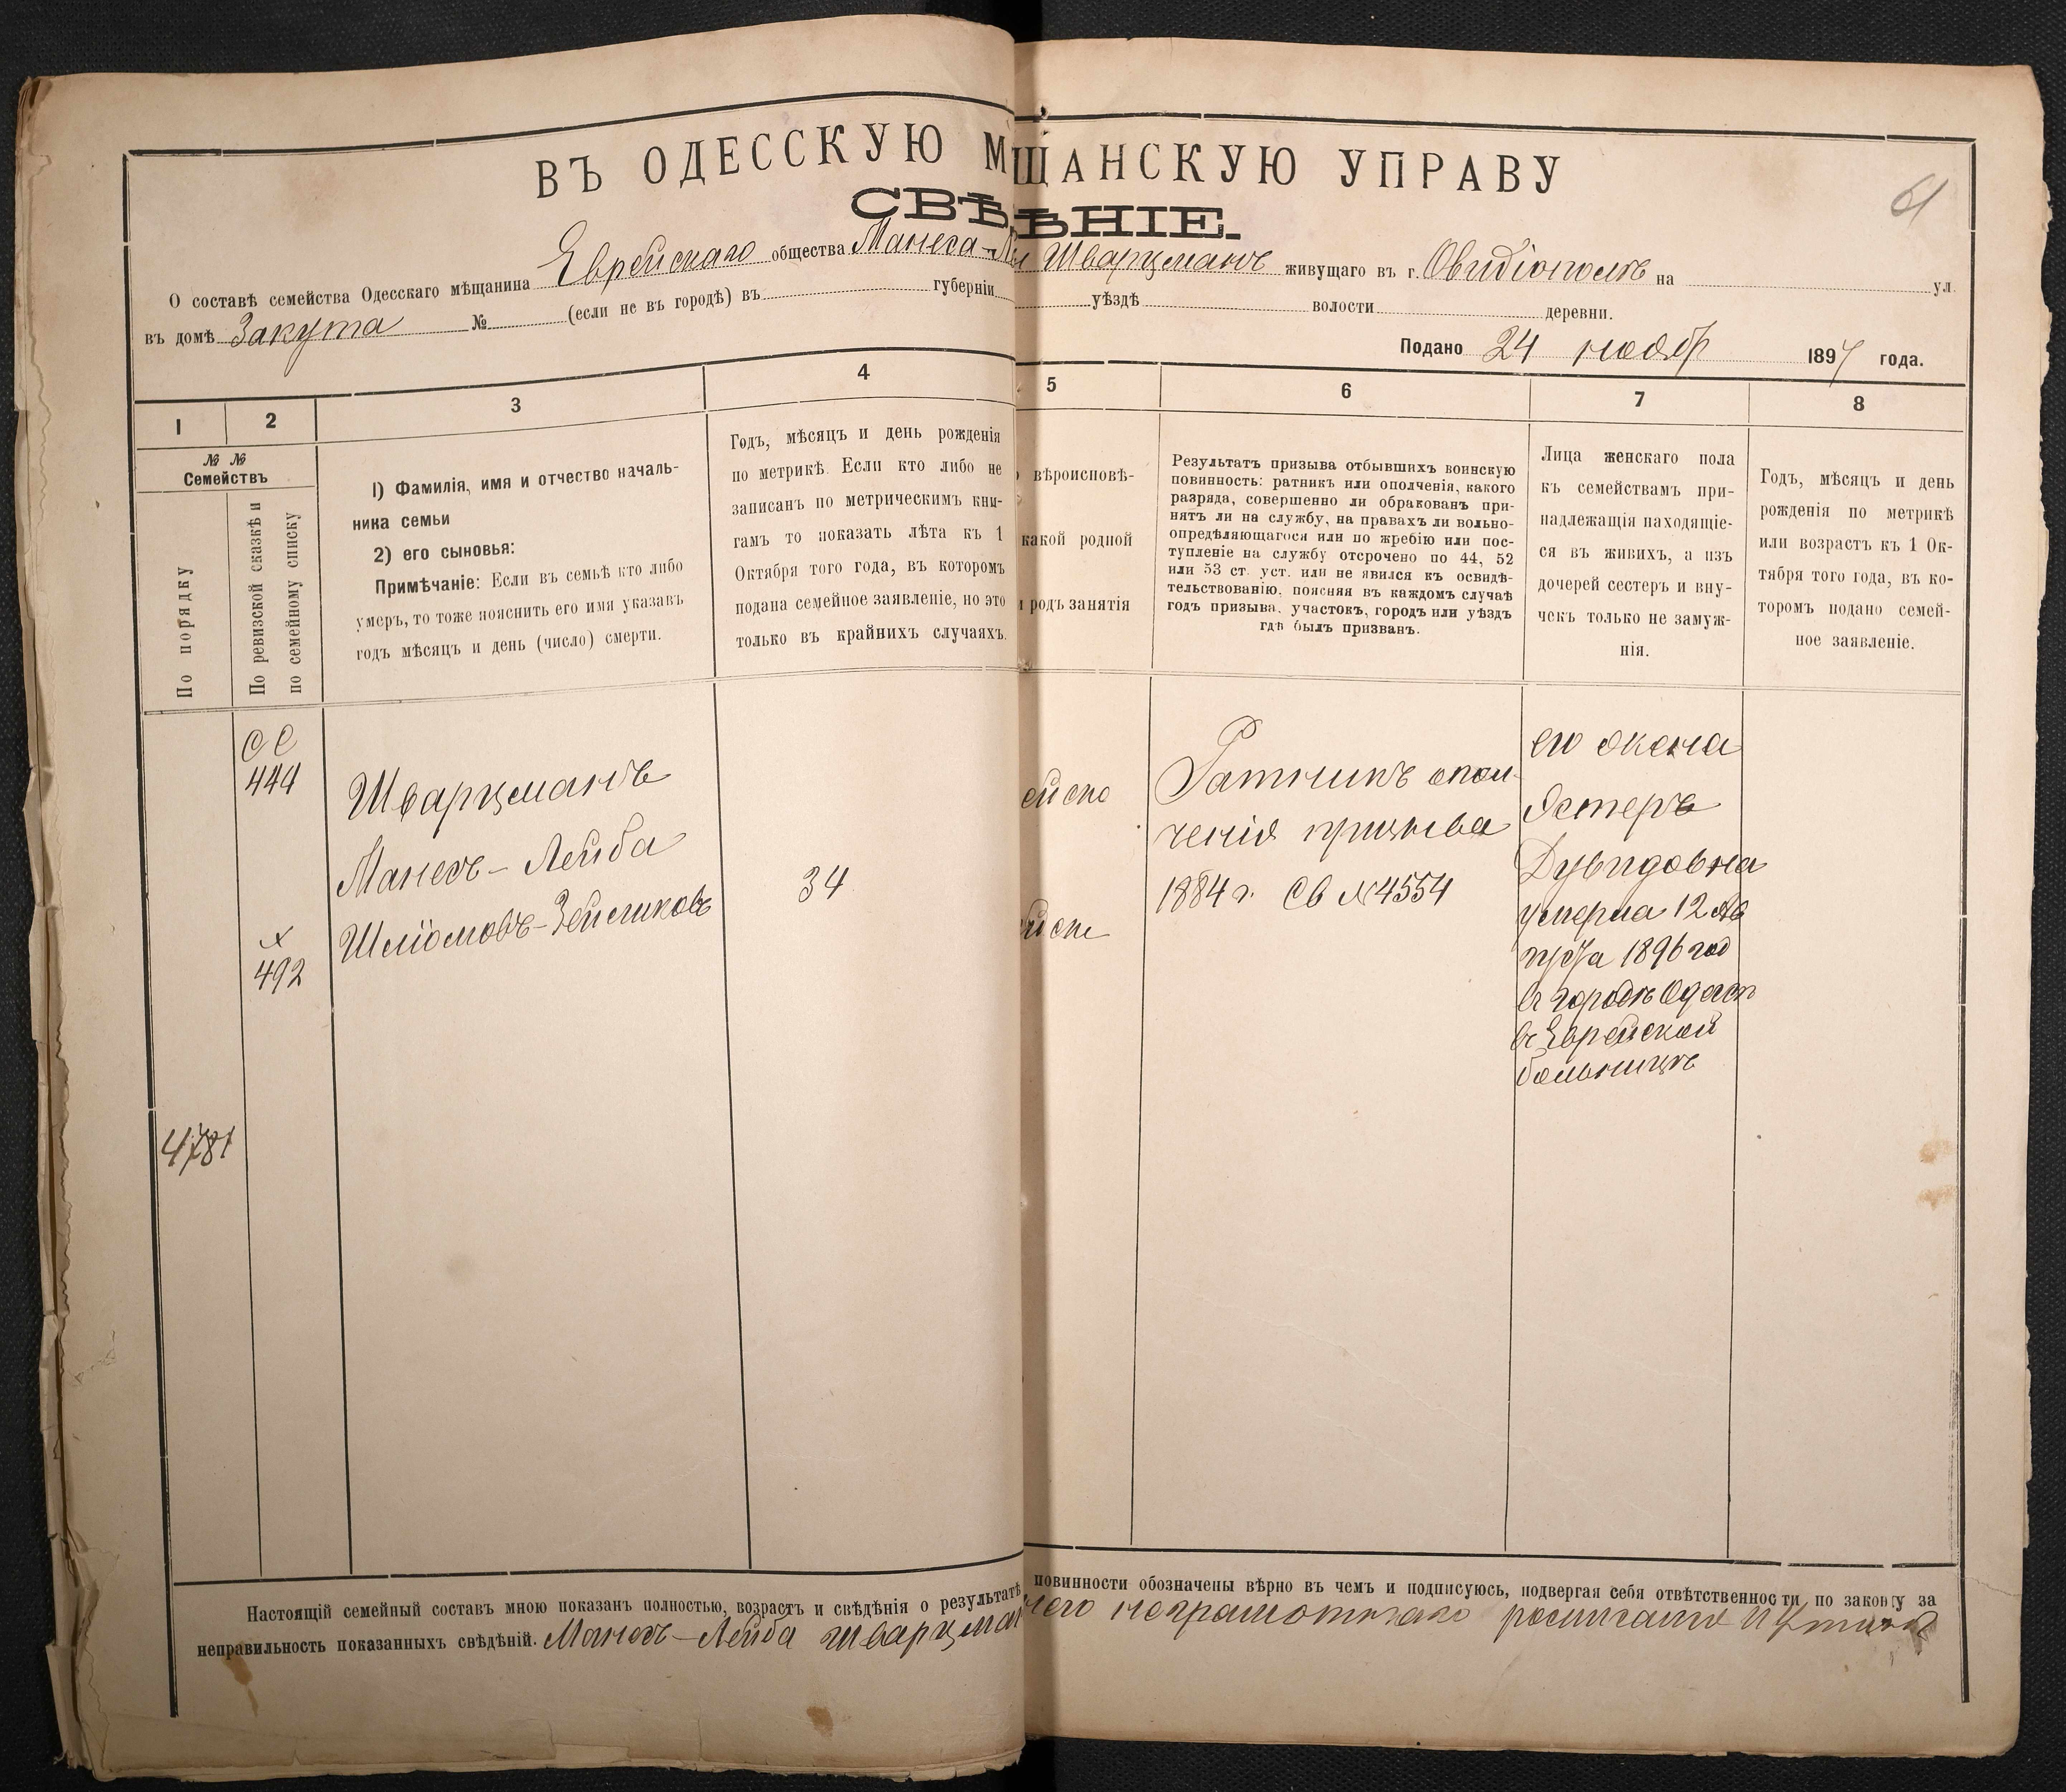 ВЪ ОДЕССКУЮ МЩАНСКУЮ УПРАВУ
61
СВѢѢНІЕ.
О составѣ семейства Одесскаго мѣщанина Еврейскаго общества Манеса-Ле Шварцманъ живущаго въ г. Овидіополѣ на ул.
въ домѣ Закута № (если не въ городѣ) въ губерніи уѣздѣ волости деревни.
Подано 24 ноябр 1897 года.
1 2 3 4 5 6 7 8
№ №
Семействъ
По порядку
По ревизской сказкѣ и
по семейному списку
1) Фамилія, имя и отчество началь-
ника семьи
2) его сыновья:
Примѣчаніе: Если въ семьѣ кто либо
умеръ, то тоже пояснить его имя указавъ
годъ мѣсяцъ и день (число) смерти.
Годъ, мѣсяцъ и день рожденія
по метрикѣ. Если кто либо не
записанъ по метрическимъ кни-
гамъ то показать лѣта къ 1
Октября того года, въ которомъ
подана семейное заявленіе, но это
только въ крайнихъ случаяхъ.
вѣроисповѣ-
какой родной
родъ занятія
Результатъ призыва отбывшихъ воинскую
повинность: ратникъ или ополченія, какого
разряда, совершенно ли обракованъ при-
нятъ ли на службу, на правахъ ли вольно-
опредѣляющагося или по жребію или пос-
тупленіе на службу отсрочено по 44, 52
или 53 ст. уст. или не явился къ освидѣ-
тельствованію, поясняя въ каждомъ случаѣ
годъ призыва, участокъ, городъ или уѣздъ
гдѣ былъ призванъ.
Лица женскаго пола
къ семействамъ при-
надлежащія находящіе-
ся въ живихъ, а изъ
дочерей сестеръ и вну-
чекъ только не замуж-
нія.
Годъ, мѣсяцъ и день
рожденія по метрикѣ
или возрастъ къ 1 Ок-
тября того года, въ ко-
торомъ подано семей-
ное заявленіе.
СС
444
х
492
4781
Шварцманъ
Манесъ-Лейба
Шліомовъ-Зейликовъ
34
ейско
ейске
Ратникъ опол-
ченія призыва
1884 г. Св №4554
его жена
Эстеръ
Дувидовна
умерла 12 Ав
густа 1896 год
въ городѣ Одессѣ
въ Еврейской
больницѣ
Настоящій семейный составъ мною показанъ полностью, возрастъ и свѣдѣнія о результатѣ повинности обозначены вѣрно въ чемъ и подписуюсь, подвергая себя отвѣтственности по закону за
неправильность показанныхъ свѣдѣній. Манесъ-Лейба Шварцман него неграмотнаго росписался